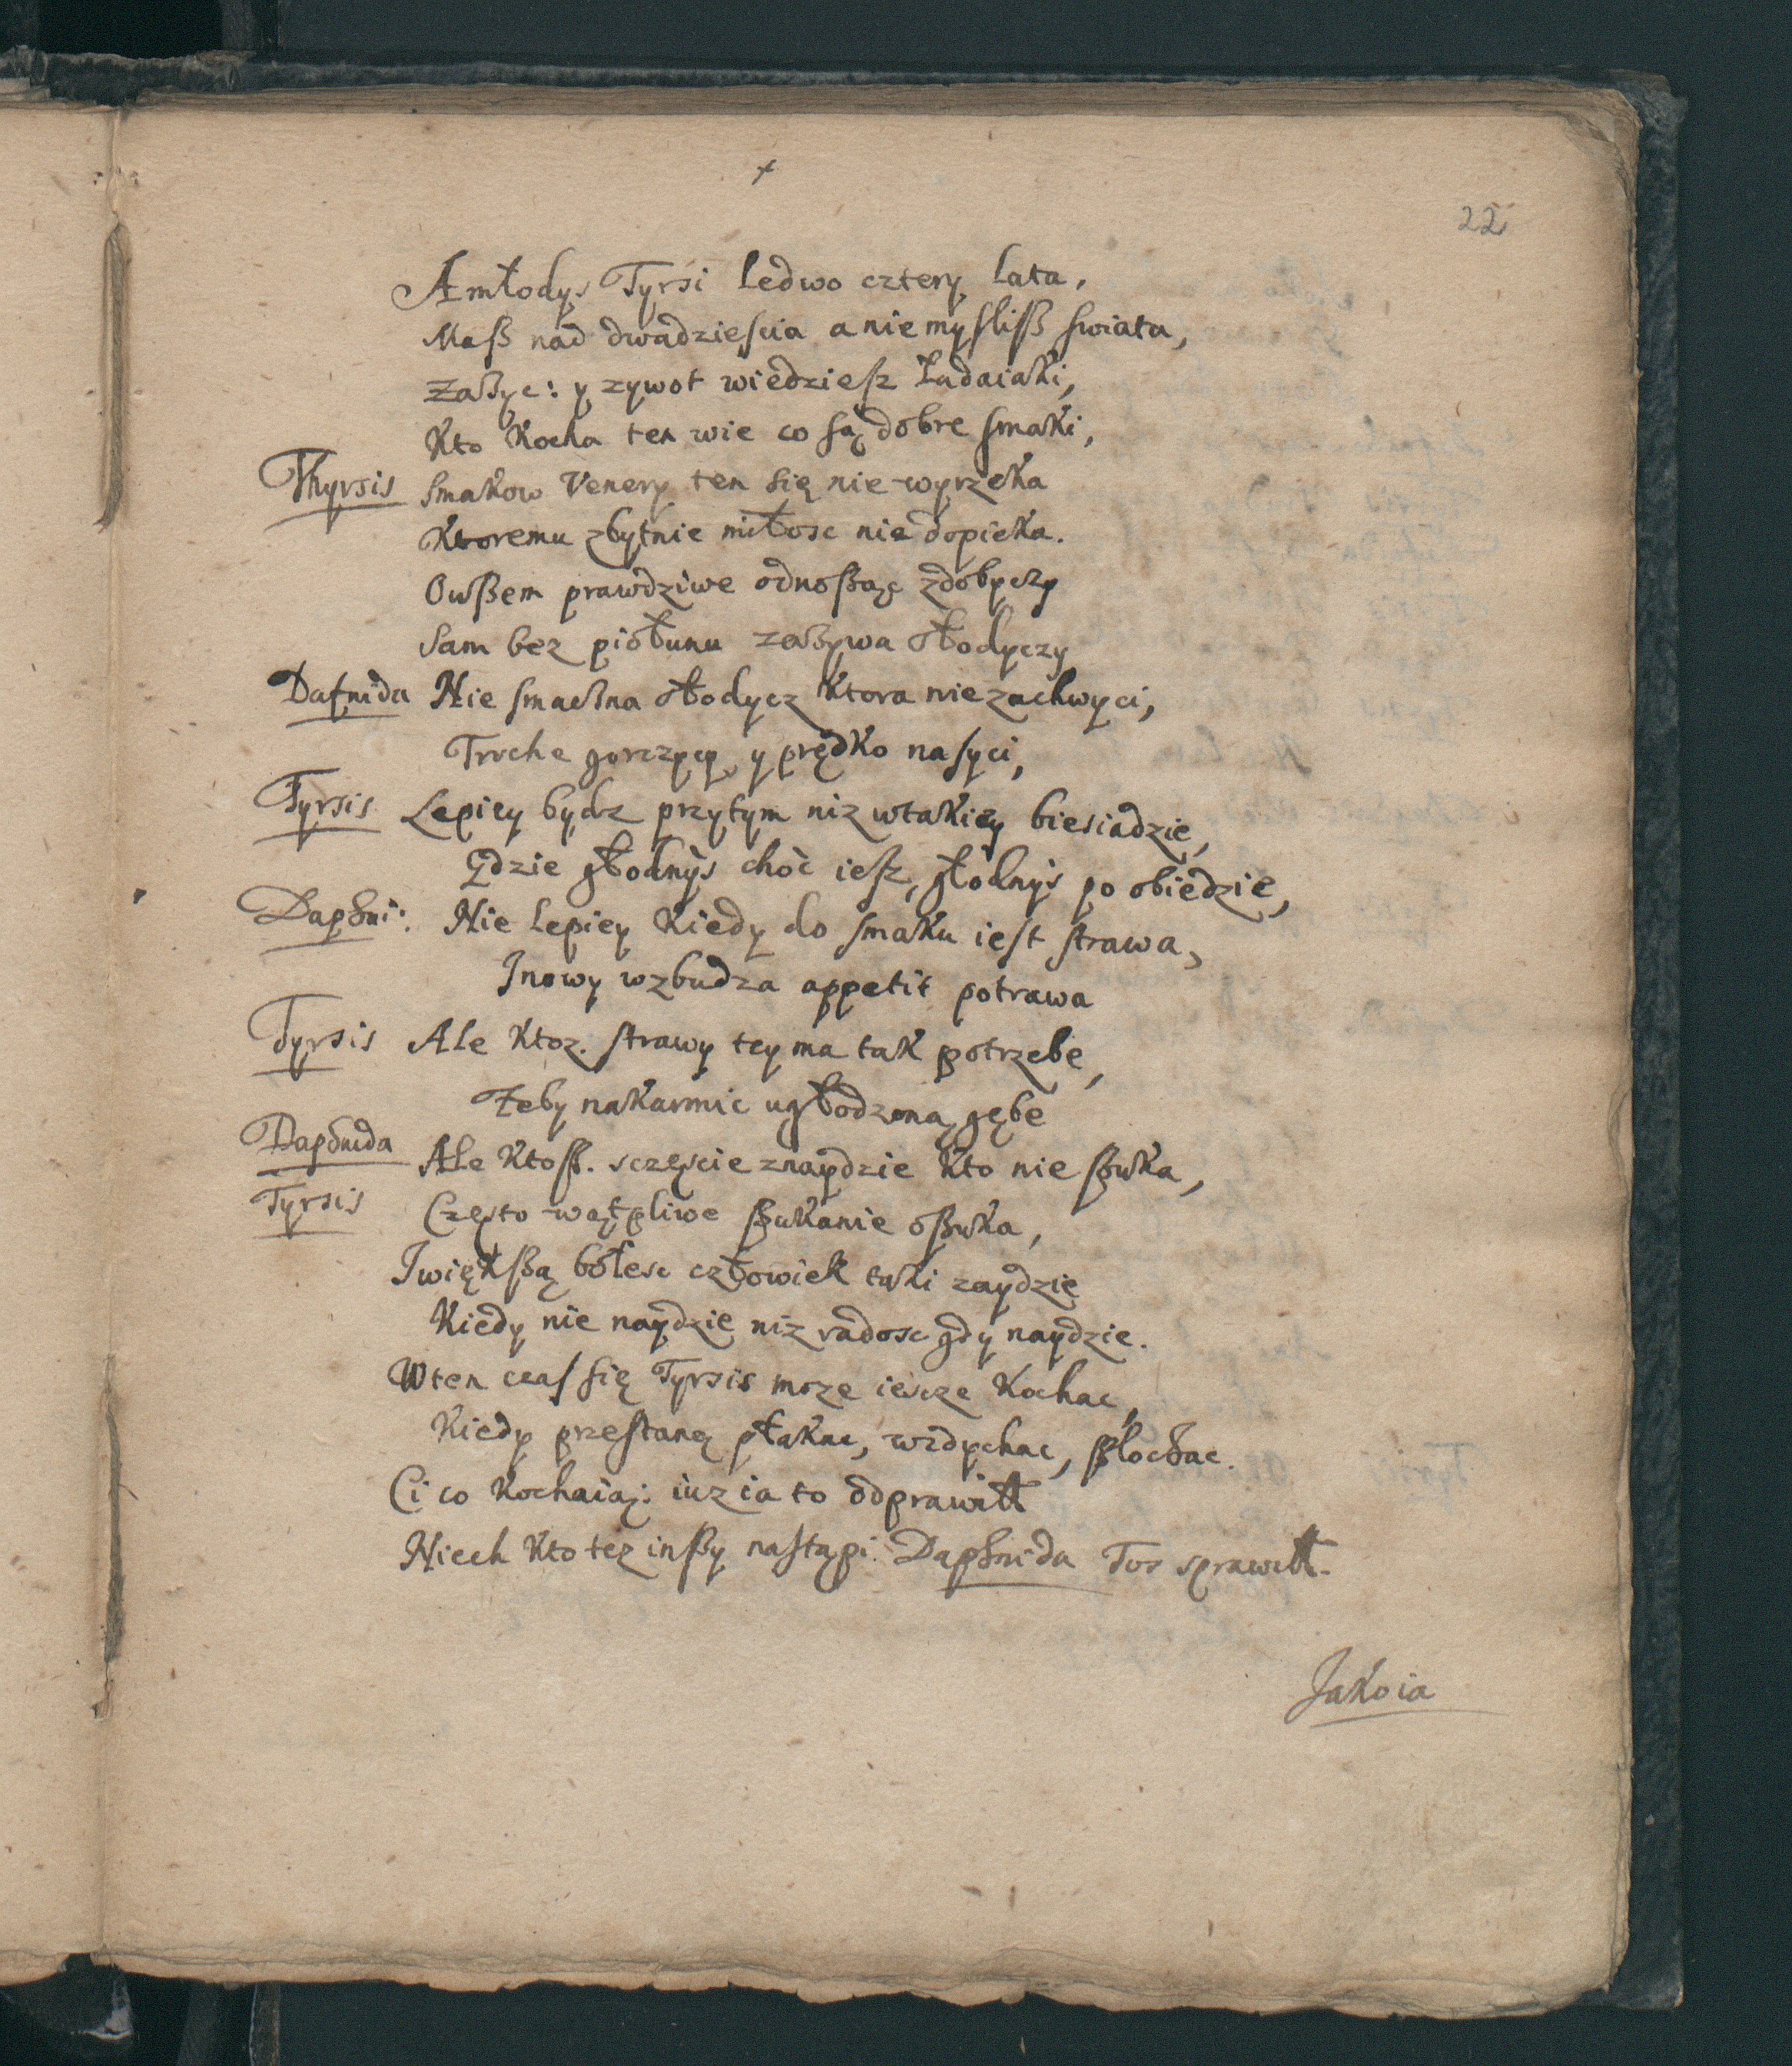 22
Amłodys Tyrsi ledwo cztery lata,
Maß nad dwadziescia a nie mysliß swiata,
Zażyc: y zywot wiedziesz ladaiaki,
Kto Kocha ten wie co są dobre smaki,
Thyrsis Smakow Venery ten się nie wyrzeka
Ktoremu zbytnie miłosc nie dopieka.
Owßem prawdziwe odnoßąc zdobyczy
Sam bez piołunu zażywa słodyczy
Dafnida Nie smaczna słodycz ktora nie zachwyci,
Troche gorzczycy y prędko nasyci,
Tyrsis Lepiey bydz przytym niz wtakiey biesiadzie,
Gdzie głodnys choć iesz, głodnys po obiedzie,
Daphni: Nie lepiey Kiedy do smaku iest strawa,
Jnowy wzbudza appetit potrawa
Tyrsis Ale Ktoz. strawy tey ma tak potrzebe,
Zeby nakarmic ugłodzoną gębe
Daphnida Ale Ktoß. sczęscie znaydzie Kto nie ßuka,
Tyrsis Często wątpliwe ßukanie oßuka,
Jwiękßą bolesc człowiek taki zaydzie
Kiedy nie naydzie niz radosc gdy naydzie.
Wten czas się Tyrsis moze iescze Kochac,
Kiedy przestaną płakac, wzdychac, ßlochac.
Ci co Kochaią: iuz ia to odprawiłł
Niech Kto tez inßy nastąpi. Daphnida Tos sprawiłł.
Jakoia